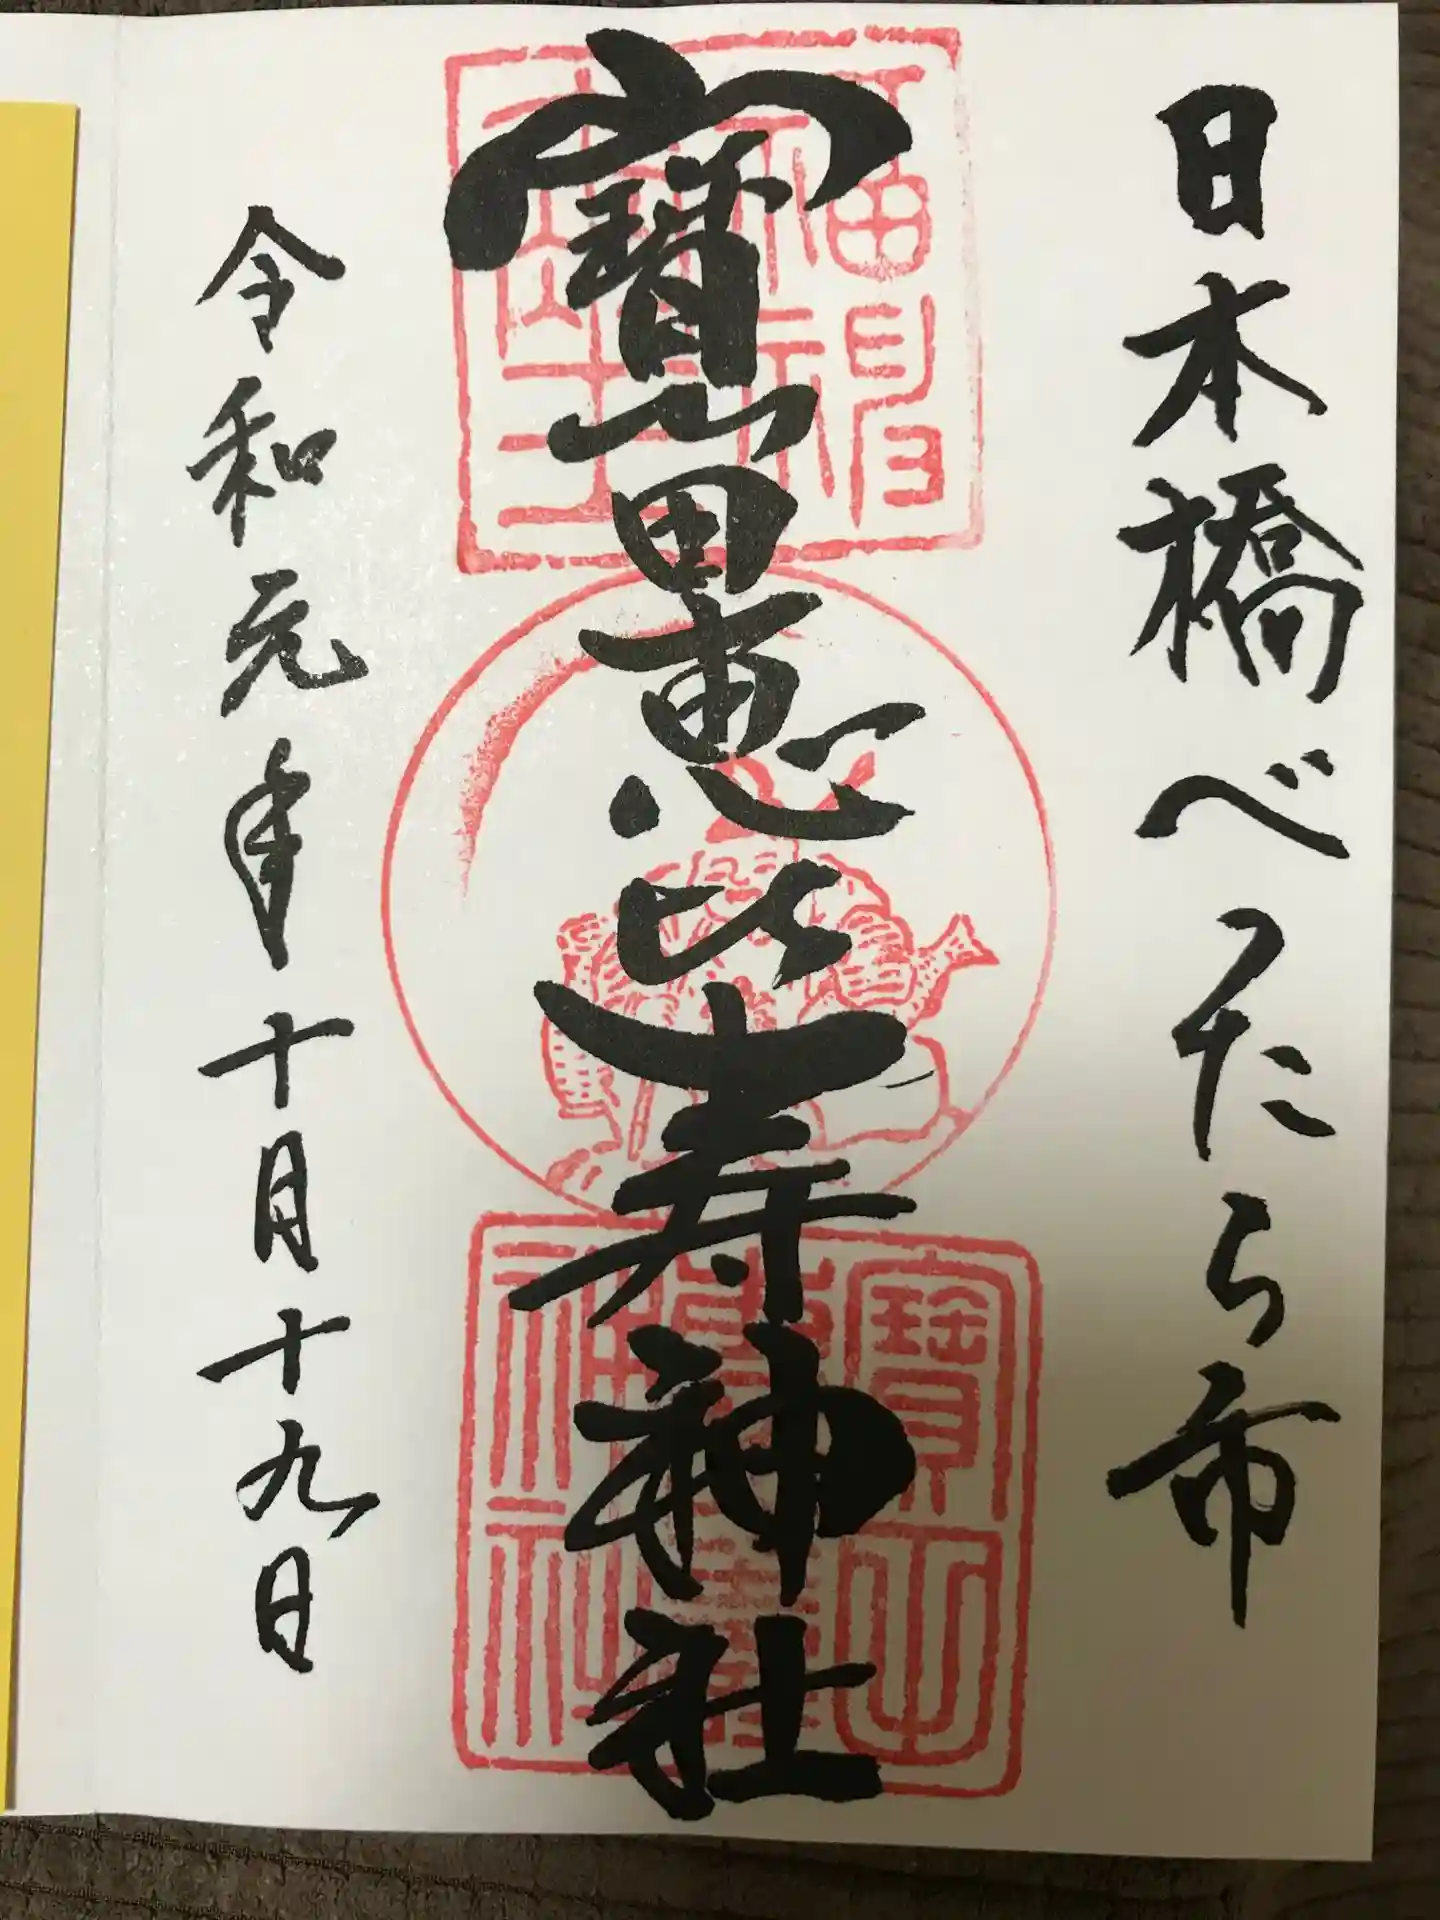 日本橋べったら市
寶田恵比寿神社
令和元年十月十九日